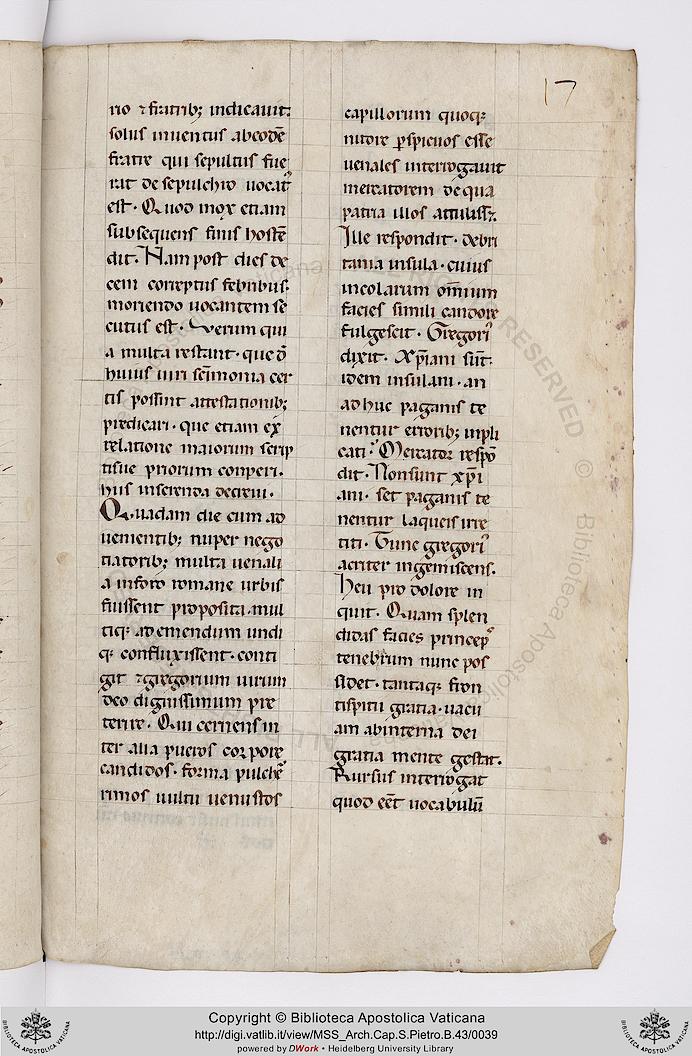 17
rio ⁊ fratrib; indicauit.
solus inuentus ab eodē
fratre qui sepultus fue
rat de sepulchro uocat᷒
est. Quod mox etiam
subsequens finis hostē
dit. Nam post dies de
cem correptus febribus.
moriendo uocantem se
cutus est. Verum qui
a multa restant. que d̄
huius uiri sc̄imonia cer
tis possint attestationib;
predicari. que etiam ex
relatione maiorum scrip
tisue priorum conperi.
hus inserenda decreui.
Quadam die cum ad
uementib; nuper nego
tiatorib; multa uenali
a in foro romane urbis
fuissent proposita. mul
tiq; ad emendum undi
q; confluxissent. conti
git ⁊ gregorium uirum
deo dignissimum pre
terire. Qui cernens in
ter alia pueros corpore
candidos. forma pulchē
rimos uultu uenustos
capillorum quoq;
nitore ꝑspicuos esse
uenales interrogauit
mercatorem de qua
patria illos attuliss;.
Ille respondit. de bri
tania insula. cuius
incolarum om̄ium
facies simili candore
fulgescit. Gregori᷒
dixit. Xp̄iani sūt
idem insulani. an
ad huc paganis te
nentur errorib; inpli
cati? Mercator respō
dit. Non sunt xp̄i
ani. set paganis te
nentur laqueis irre
titi. Tunc gregori᷒
acriter ingemiscens.
Heu pro dolore in
quit. Quam splen
didas facies princep᷒
tenebrum nunc pos
sidet. tantaq; fron
tispitii gratia. uacu
am ab interna dei
gratia mente gestat.
Rursus interrogat
quod eēt uocabulū
Copyright © Biblioteca Apostolica Vaticana
http://digi.vatlib.it/view/MSS_Arch.Cap.S.Pietro.B.43/0039
powered by DWork • Heidelberg University Library